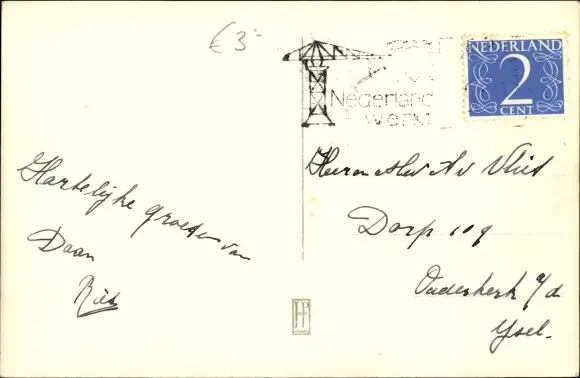 € 3-
Nederland
werkt
NEDERLAND
2
CENT
Hartelijke groeten van
Daan
Riet
Heer en Mev A v Vliet
Dorp 109
Ouderkerk a/d
Ysel.